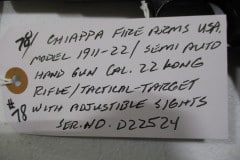 78/ CHIAPPA FIRE ARMS USA.
MODEL 1911-22/ SEMI AUTO
HAND GUN CAL. 22 LONG
RIFLE/TACTICAL-TARGET
#78 WITH ADJUSTIBLE SIGHTS
SER.NO. D22524